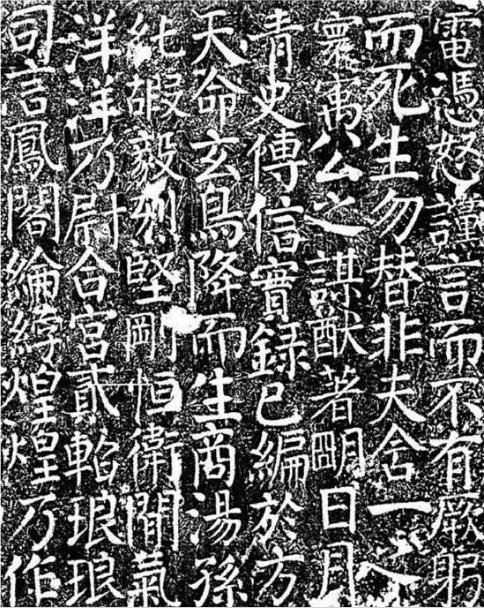 電憑怒讜言而不有厥躬
而死生勿替非夫含一
寰寓公之謀猷著明日月
青史傳信實錄已編於方
天命玄鳥降而生商湯孫
純嘏毅烈堅剛恒衛間氣
洋洋乃尉合宮貳軺琅琅
司言鳳閣綸綍煌煌乃作